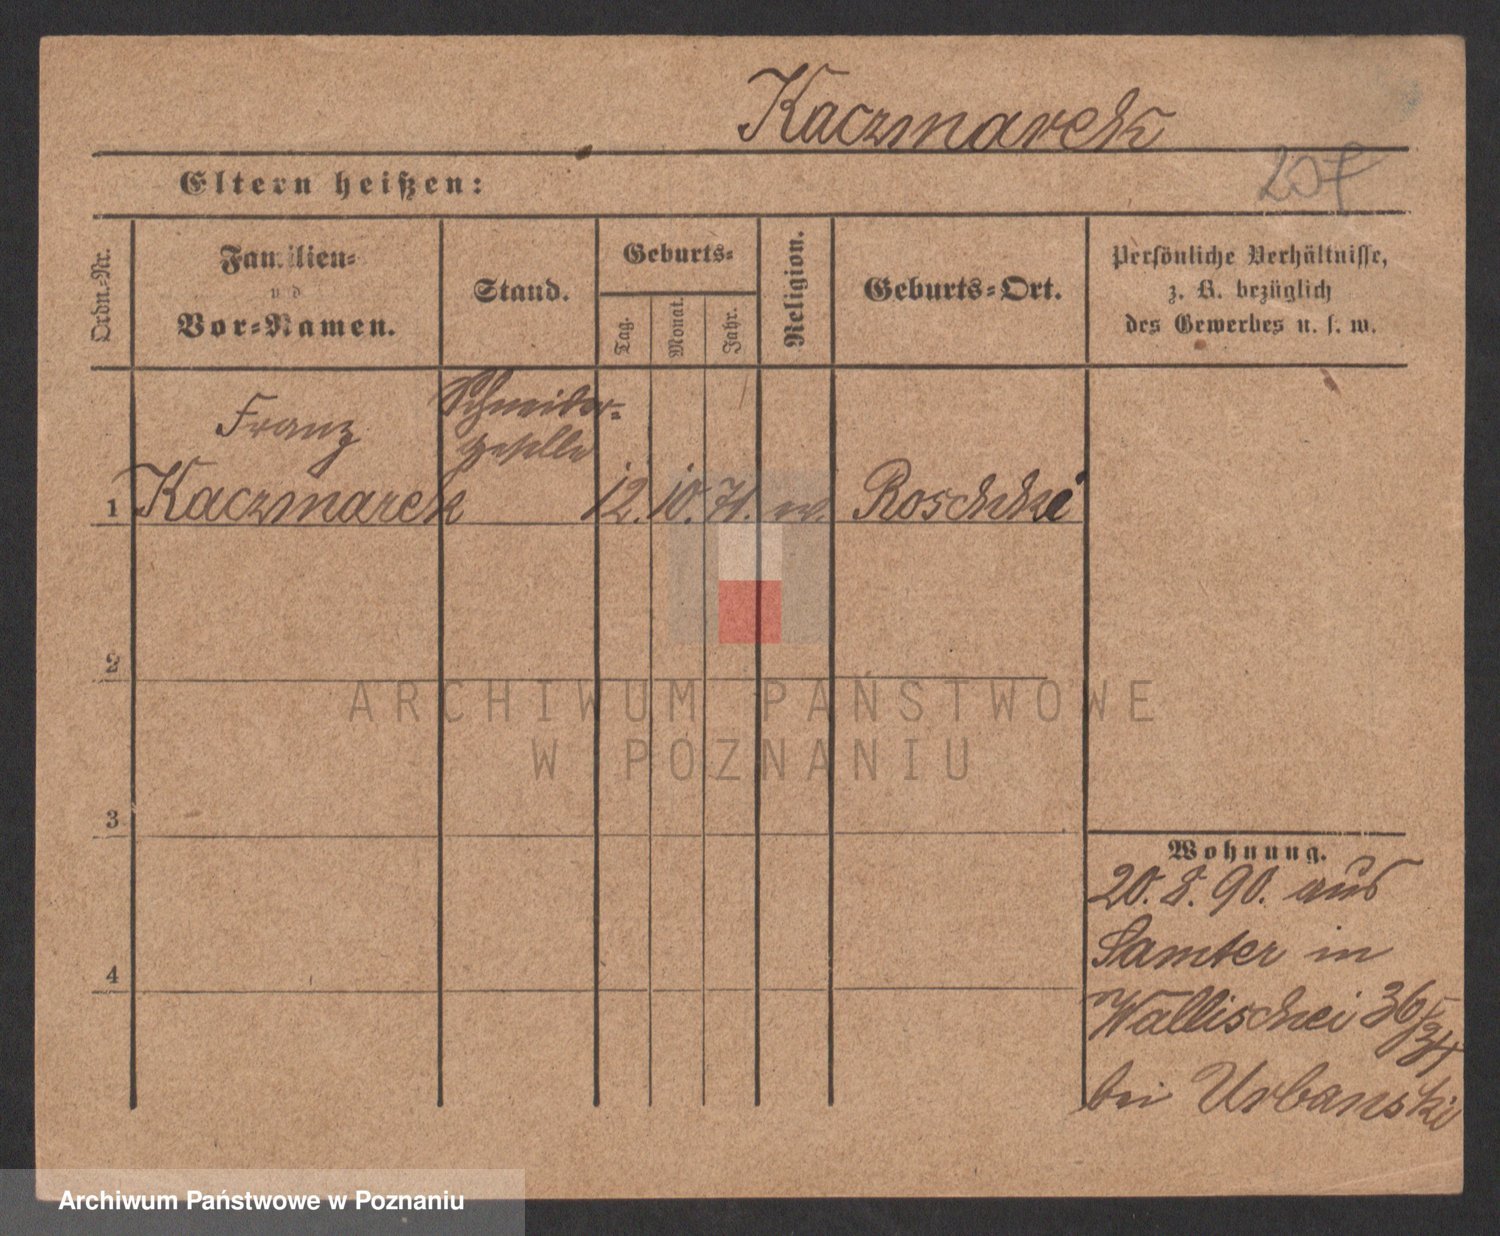 Kaczmarek
207
Eltern heißen:
Ordn.-Nr.
Familien-
und
Vor-Namen.
Stand.
Geburts-
Tag.
Monat.
Jahr.
Religion.
Geburts-Ort.
Persönliche Verhältnisse,
z. B. bezüglich
des Gewerbes u. s. w.
Franz
Schneider-
geselle
1 Kaczmarek 12. 10. 71. Roschki
2
ARCHIWUM PAŃSTWOWE
W POZNANIU
3
Wohnung.
20. 8. 90. aus
Samter in
4
Wallischei 36/37
bei Urbanski
Archiwum Państwowe w Poznaniu